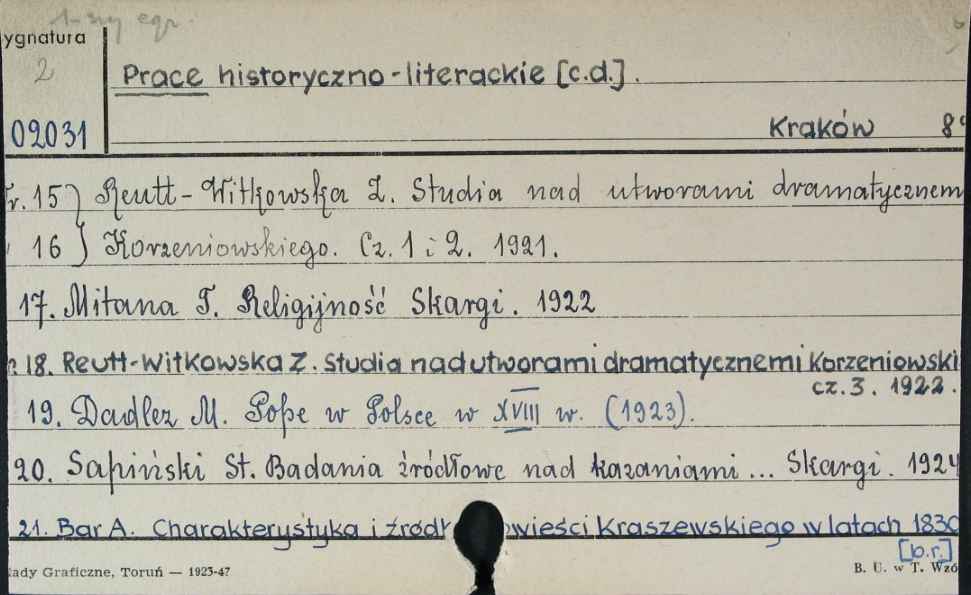 1-szy egz.
ygnatura
2
Prace historyczno-literackie [c.d.].
02031
Kraków 8°
r. 15) Reutt-Witkowska Z. Studia nad utworami dramatycznem
16) Korzeniowskiego. Cz. 1 i 2. 1921.
17. Mitana T. Religijność Skargi. 1922
18. Reutt-Witkowska Z. Studia nad utworami dramatycznemi Korzeniowski
cz. 3. 1922.
19. Dadlez M. Pope w Polsce w XVIII w. (1923).
20. Sapiński St. Badania źródłowe nad kazaniami ... Skargi. 1924
21. Bar A. Charakterystyka i źródł wieści Kraszewskiego w latach 1830
[b.r.]
łady Graficzne, Toruń — 1923-47
B. U. w T. Wzó